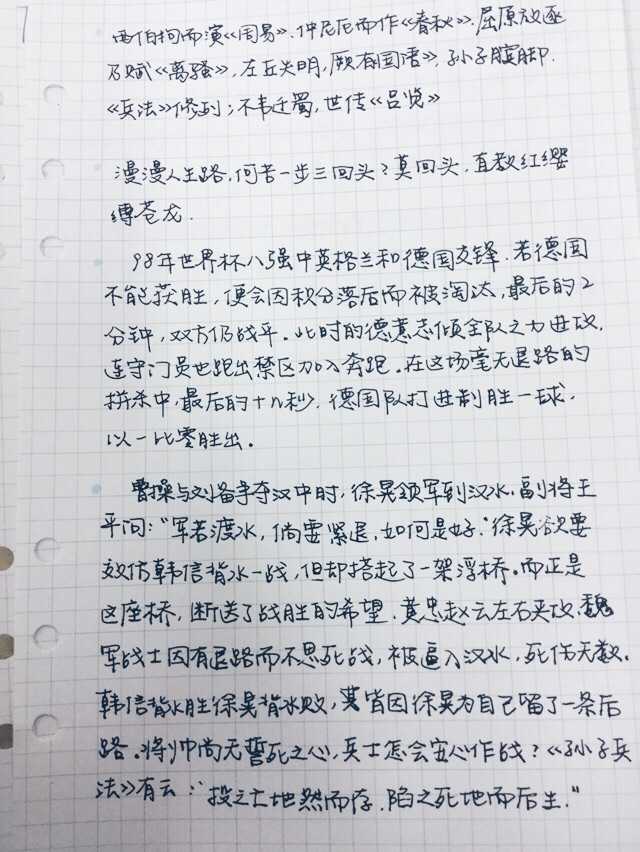 西伯拘而演《周易》、仲尼厄而作《春秋》、屈原放逐
乃赋《离骚》，左丘失明，厥有国语》，孙子膑脚.
《兵法》修列；不韦迁蜀，世传《吕览》
漫漫人生路，何苦一步三回头？莫回头，直教红缨
缚苍龙.
98年世界杯八强中英格兰和德国交锋.若德国
不能获胜，便会因积分落后而被淘汰，最后的2
分钟，双方仍战平.此时的德意志倾全队之力进攻，
连守门员也跑出禁区加入奔跑.在这场毫无退路的
拼杀中，最后的十几秒，德国队打进制胜一球，
以一比零胜出。
曹操与刘备争夺汉中时，徐晃领军到汉水.副将王
平问："军若渡水，倘要紧退，如何是好."徐晃欲要
效仿韩信背水一战，但却搭起了一架浮桥。而正是
这座桥，断送了战胜的希望.黄忠赵云左右夹攻.魏
军战士因有退路而不思死战，被逼入汉水，死伤无数.
韩信背水胜徐晃背水败，皆因徐晃为自己留了一条后
路.将帅尚无誓死之心，兵士怎会安心作战？《孙子兵
法》有云："投之亡地然而存.陷之死地而后生."